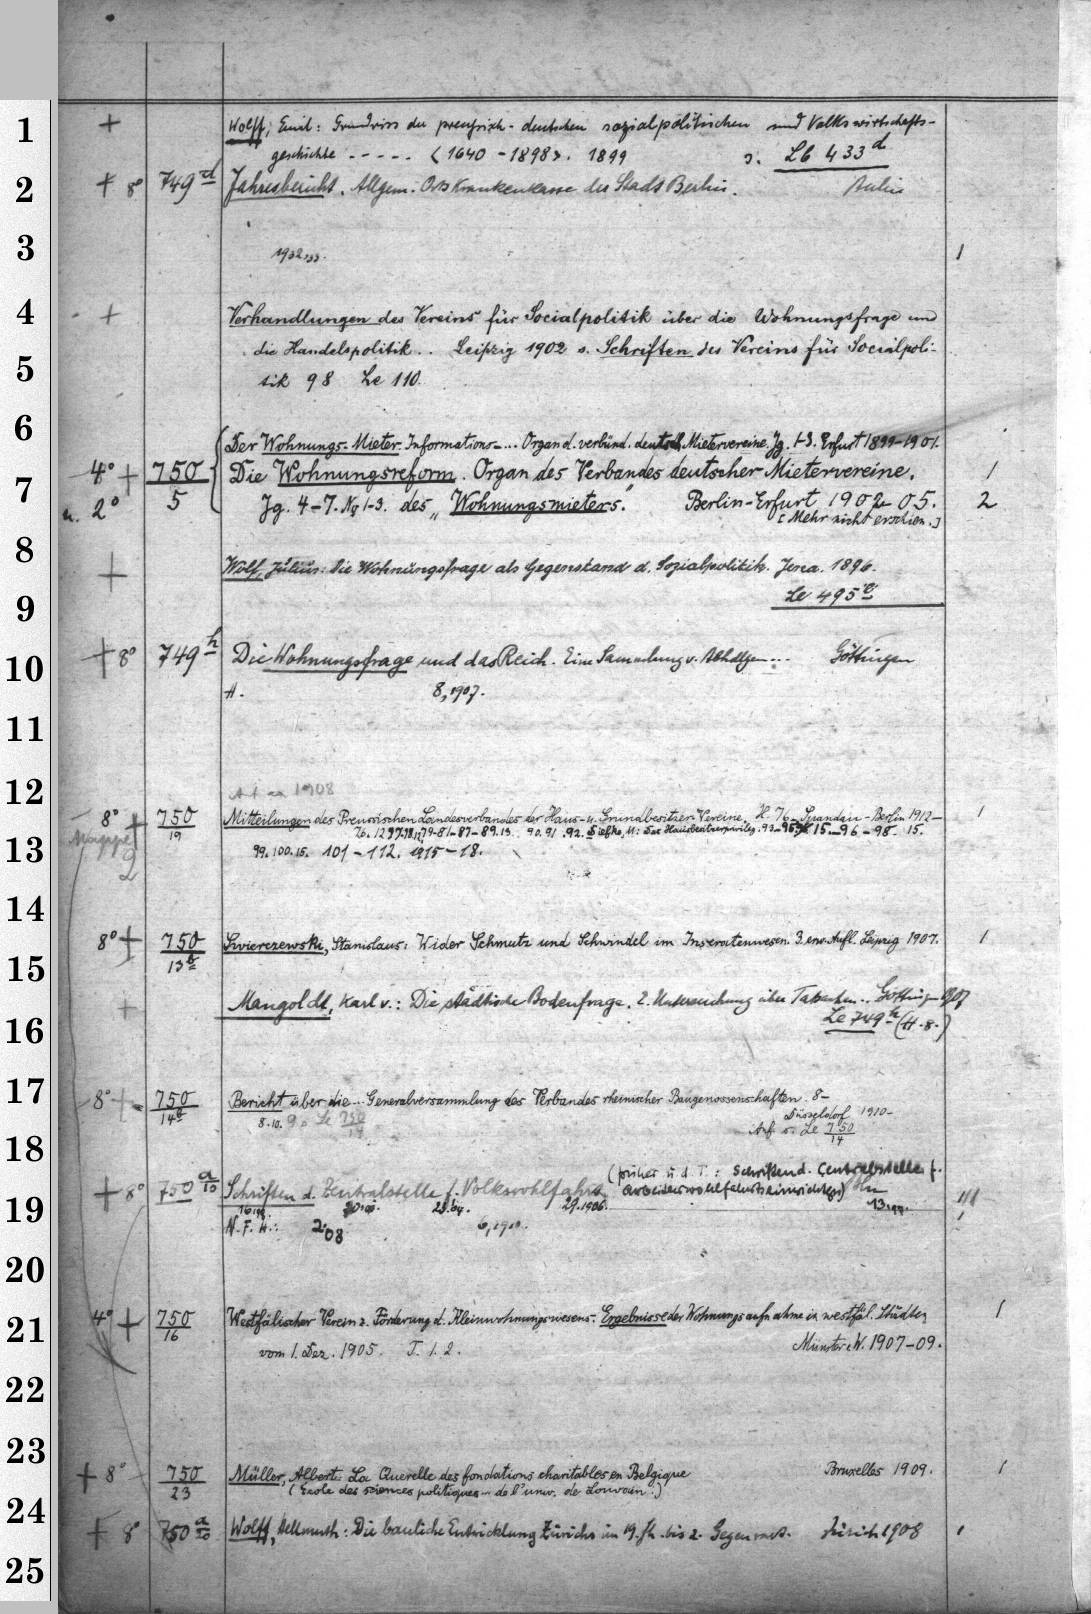 1
+ Wolff, Emil: Grundriss der preußisch-deutschen sozialpolitischen und Volkswirtschafts-
geschichte ----- <1640-1898>. 1899 s. Lb 433 d
2
+ 8° 749 d Jahresbericht. Allgem. Ortskrankenkasse der Stadt Berlin. Berlin
3
1932,33. 1
4
+ Verhandlungen des Vereins für Socialpolitik über die Wohnungsfrage und
die Handelspolitik.. Leipzig 1902 s. Schriften des Vereins für Socialpoli-
5
tik 98 Le 110.
6
Der Wohnungs-Mieter. Informations-... Organ d. verbünd. deutsch. Mietervereine. Jg. 1-3. Erfurt 1899-1901.
4° + 750/5 Die Wohnungsreform. Organ des Verbandes deutscher Mietervereine. 1
7
u. 2° Jg. 4-7. No 1-3. des „Wohnungsmieters." Berlin-Erfurt 1902-05. 2
[Mehr nicht erschien.]
8
+ Wolf, Julius: Die Wohnungsfrage als Gegenstand d. Sozialpolitik. Jena. 1896.
9
Le 495 e
10
+ 8° 749 h Die Wohnungsfrage und das Reich. Eine Sammlung v. Abhdlgen... Göttingen
H. 8,1907.
11
12
1908
8° + 750/19 Mitteilungen des Preussischen Landesverbandes der Haus- u. Grundbesitzer-Vereine. H. 76- Spandau-Berlin 1912- 1
Mappe 76. 12 79-81-87-89.13. 90.91.92. 15.-96-98. 15.
13
99.100.15. 101-112. 1915-18.
14
8° + 750/13 b Swierczewski, Stanislaus: Wider Schmutz und Schwindel im Inseratenwesen. 3. erw. Aufl. Leipzig 1907. 1
15
+ Mangoldt, Karl v.: Die städtische Bodenfrage. E. Untersuchung über Tatsachen.. Göttingen 1907
16
Le 749 h (H. 8.)
17
8° + 750/14 b Bericht über die... Generalversammlung des Verbandes rheinischer Baugenossenschaften. 8-
8.10. 9. Le 750/14 Düsseldorf 1910-
Anf. s. Le 750/14
18
(früher u. d. T.: Schriften d. Centralstelle f.
+ 8° 750 a/10 Schriften d. Zentralstelle f. Volkswohlfahrt. Arbeiterwohlfahrtseinrichtgn)
19
29.1906.
N. F. H.: 2.08 6,1910.
20
4° + 750/16 Westfälischer Verein z. Förderung d. Kleinwohnungswesens. Ergebnisse der Wohnungsaufnahme in westfäl. Städten 1
21
vom 1. Dez. 1905. T. 1. 2. Münster i. W. 1907-09.
22
23
+ 8° 750/23 Müller, Albert: La Querelle des fondations charitables en Belgique Bruxelles 1909. 1
(École des sciences politiques... de l'univ. de Louvain.)
24
+ 8° 750 a/20 Wolff, Hellmuth: Die bauliche Entwicklung Zürichs im 19. Jh. bis z. Gegenwart. Zürich 1908 1
25